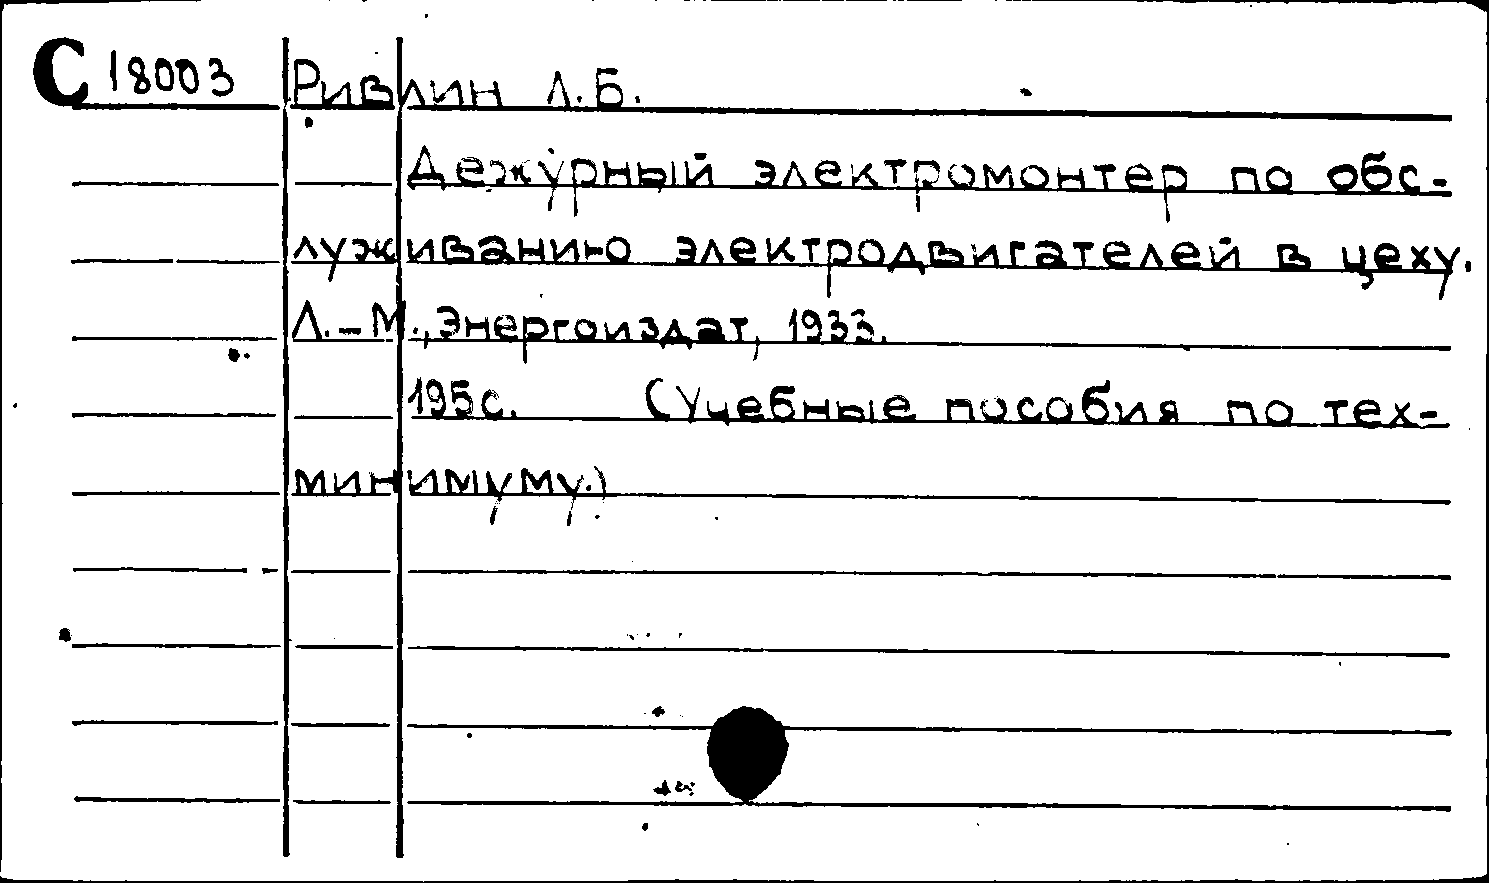 С 18003 Ривлин Л.Б.
Дежурный электромонтер по обс-
луживанию электродвигателей в цеху.
Л.-М., Энергоиздат, 1933.
195с. (Учебные пособия по тех-
минимуму.)